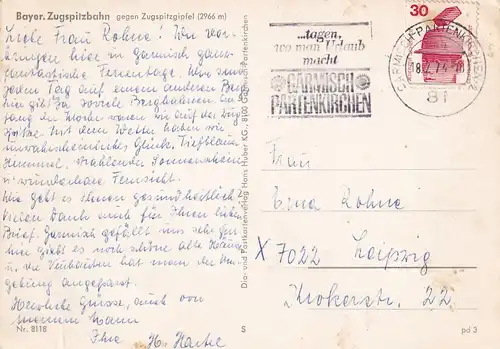 Bayer. Zugspitzbahn gegen Zugspitzgipfel (2966 m)
Liebe Frau Rohne! Wir ver-
bringen hier in Garmisch ganz
phantastische Ferientage. Wir sind
jeden Tag auf einem anderen Berg
hier gibt es soviele Bergbahnen. An-
fang der Woche waren wir auf der Zug-
spitze. Mit dem Wetter haben wir
unwahrscheinliches Glück. Tiefblauer
Himmel, strahlender Sonnenschein
u. wunderbare Fernsicht.
Wie geht es Ihnen gesundheitlich?
Vielen Dank auch für Ihren lieben
Brief. Garmisch gefällt uns sehr gut
hier gibt es noch schöne alte Häuser
u. die Neubauten hat man der Um-
gebung angepasst.
Herzliche Grüsse, auch von
meinem Mann
Ihre H. Hertel
Nr. 8118
S
Dia- und Postkartenverlag Hans Huber KG · 8100 Garmisch-Partenkirchen
...tagen,
wo man Urlaub
macht
GARMISCH
PARTENKIRCHEN
GARMISCH-PARTENKIRCHEN
81
30
Frau
Erna Rohne
X 7022 Leipzig
22
pd 3